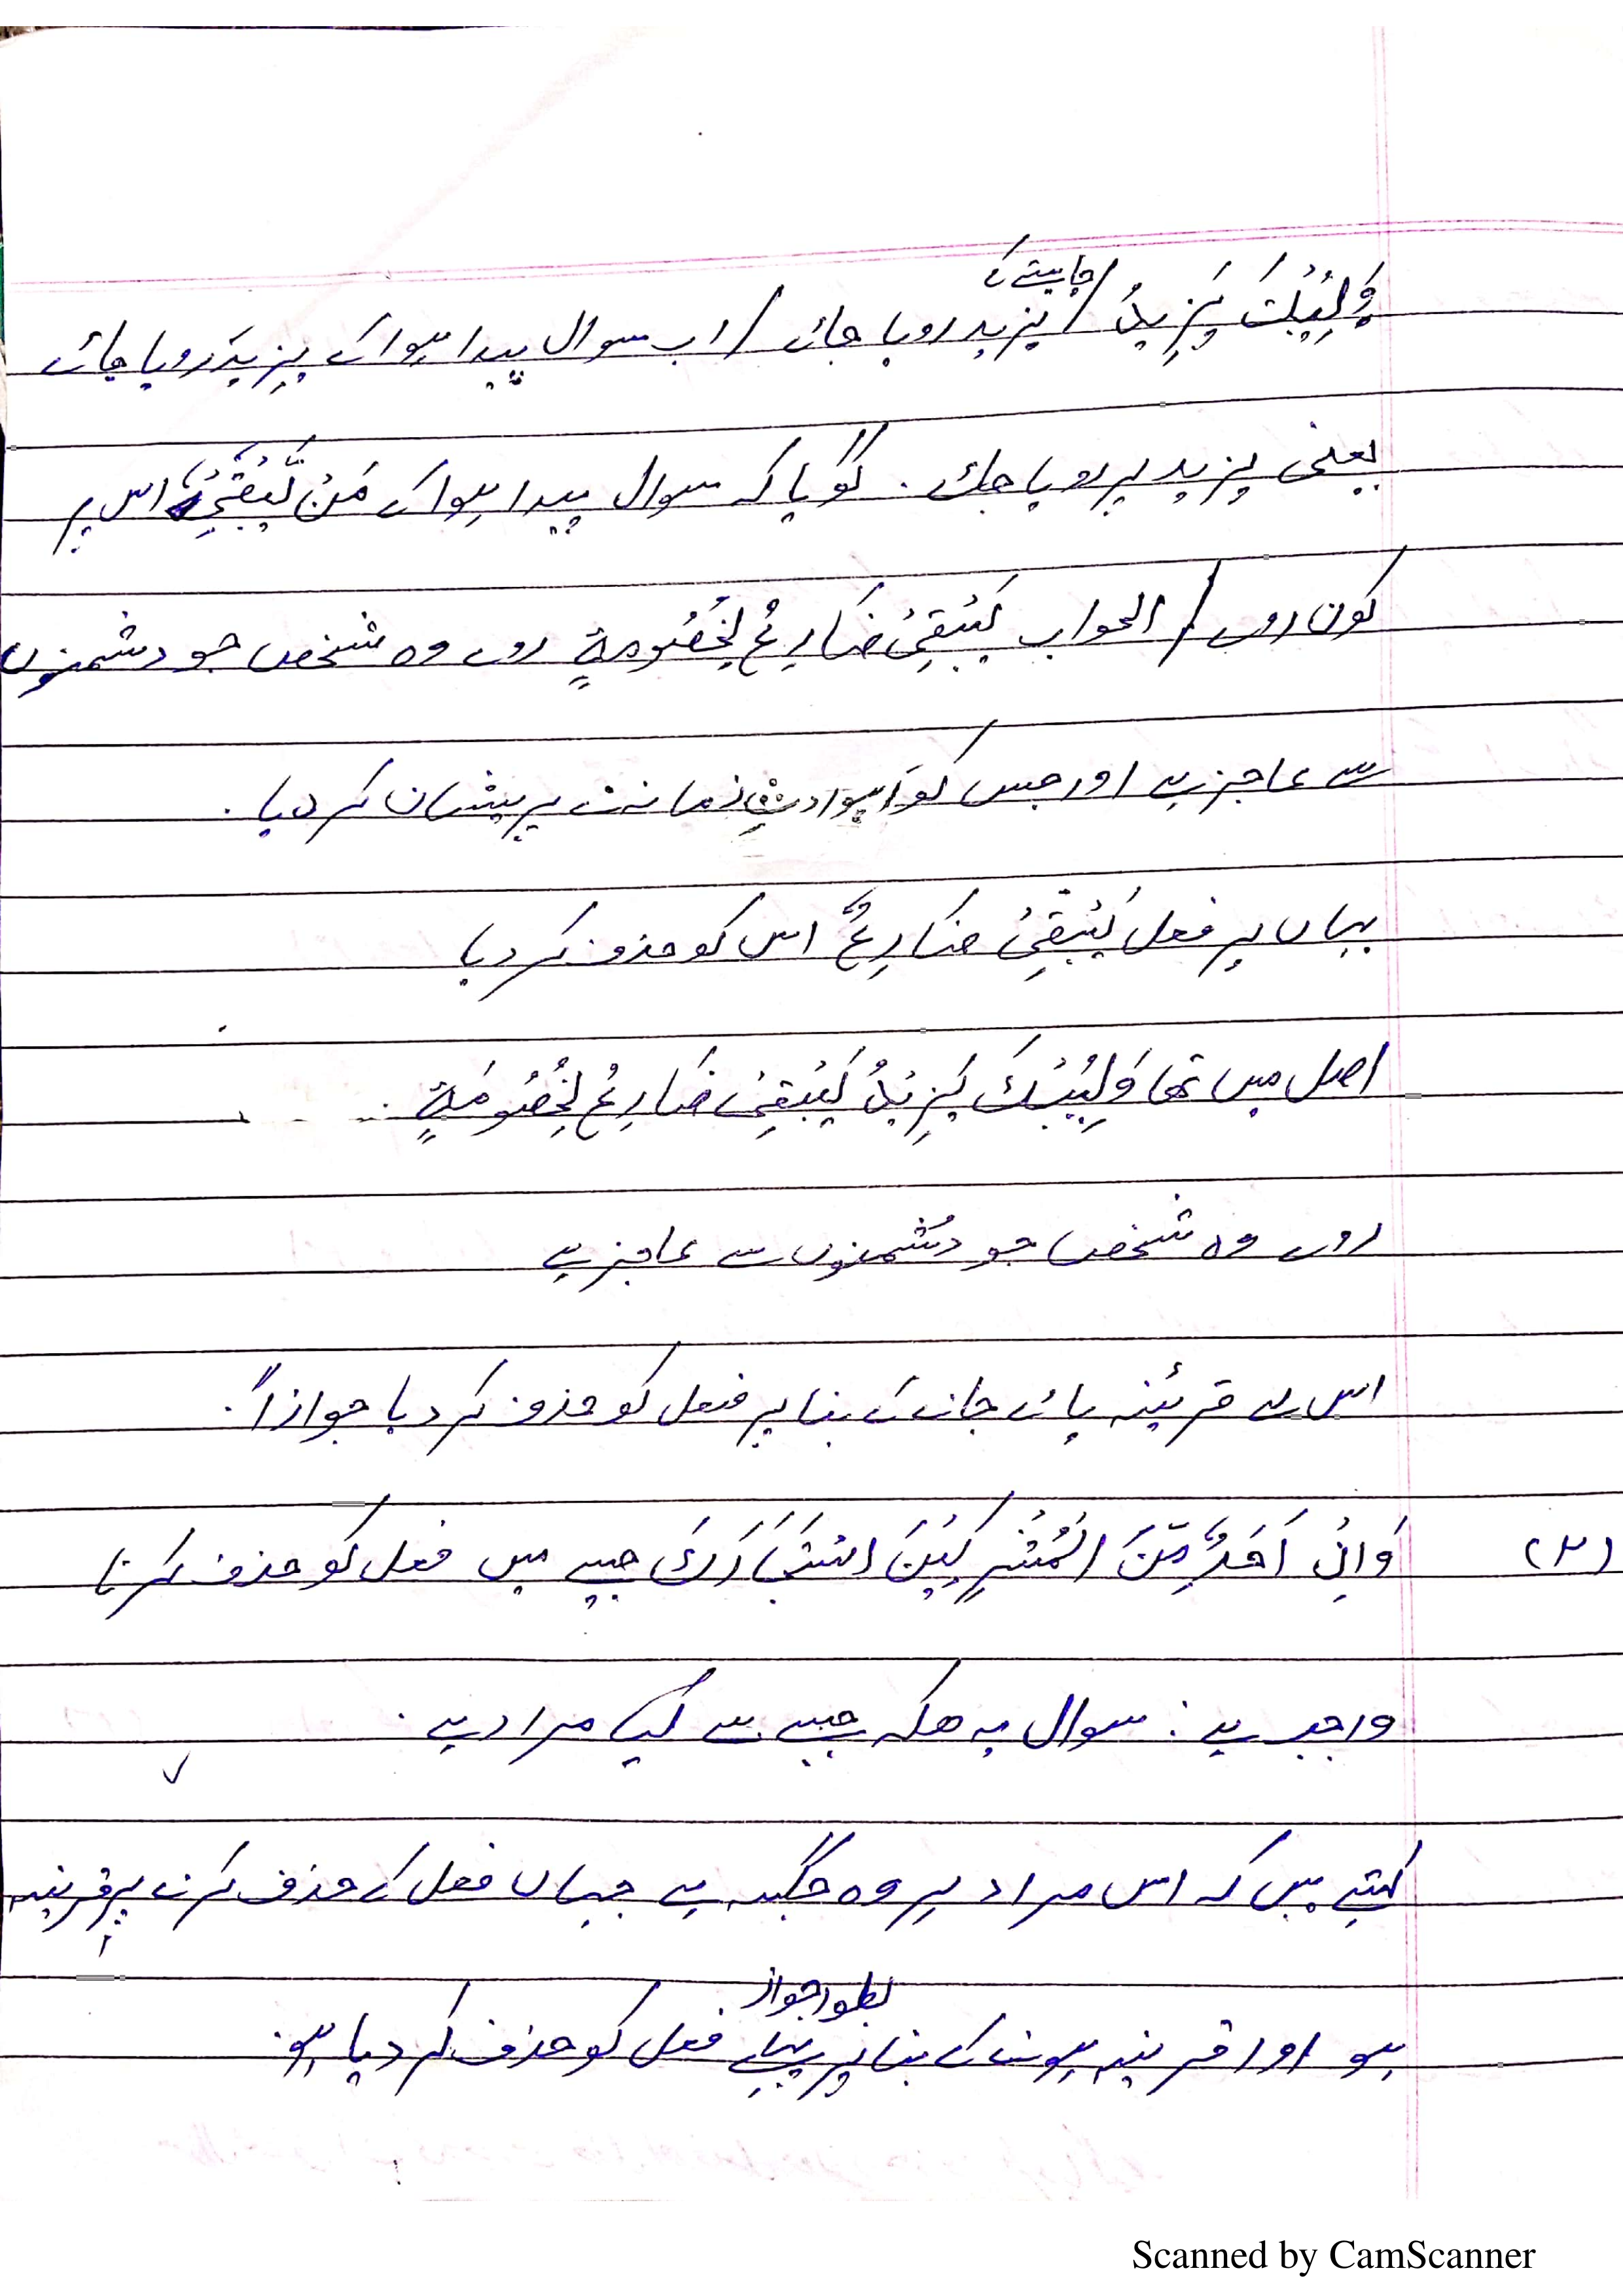 وَلِيُبْكَ يَزِيدُ / چاہیئے کہ یزید رویا جائے / اب سوال پیدا ہوا کہ یزید رویا جائے
یعنی یزید پر رویا جائے۔ گویا کہ سوال پیدا ہوا کہ مَنْ يَّبْقِيْ اس پر
کون روے / الجواب يَبْقِيْ ضَارِعٌ لِخُصُومَةٍ روے وہ شخص جو دشمنوں
سے عاجز ہے اور جس کو زمانہ نے پریشان کر دیا۔
یہاں پر فعل يَبْقِيْ ضَارِعٌ اس کو حذف کر دیا
اصل میں تھا وَلِيُبْكَ يَزِيْدُ يَبْقِيْ ضَارِعٌ لِخُصُوْمَةٍ . . . .
روے وہ شخص جو دُشمنوں سے عاجز ہے
اس لے قرینہ پائے جانے کے بنا پر فعل کو حذف کر دیا جوازاً۔
(۲) وَاِنْ اَحَدٌ مِّنَ الْمُشْرِكِيْنَ اسْتَجَارَكَ جیسے میں فعل کو حذف کرنا
واجب ہے : سوال یہ ھیکہ جیسے سے کیا مراد ہے .
کہتے ہیں کہ اس مراد ہر وہ جگہ ہے جہاں فعل کے حذف کرنے پر قرینہ
ہو اور قرینہ ہونے کے بنا پر پہلے بطور جواز فعل کو حذف کر دیا ہو۔
Scanned by CamScanner